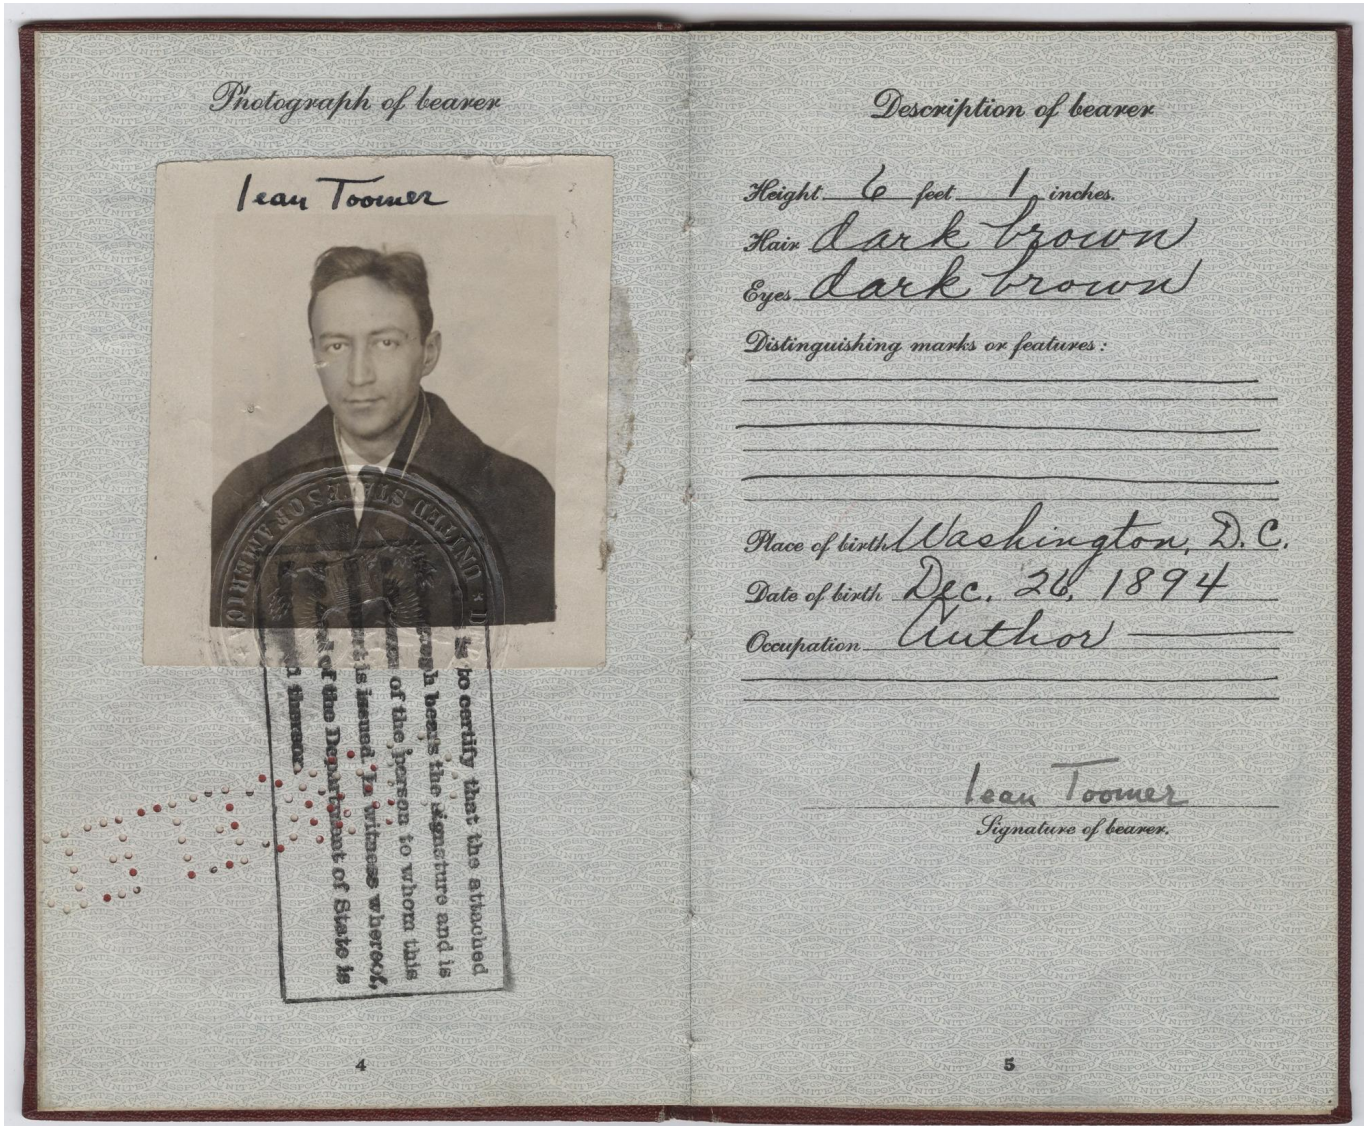 Photograph of bearer
Jean Toomer
UNITED STATES OF AMERIC
is to certify that the attached
bears the signature and is
of the person to whom this
is issued. In witness whereof,
of the Department of State is
thereon.
4
Description of bearer
Height 6 feet 1 inches.
Hair dark brown
Eyes dark brown
Distinguishing marks or features:
Place of birth Washington, D.C.
Date of birth Dec. 26, 1894
Occupation Author
Jean Toomer
Signature of bearer.
5